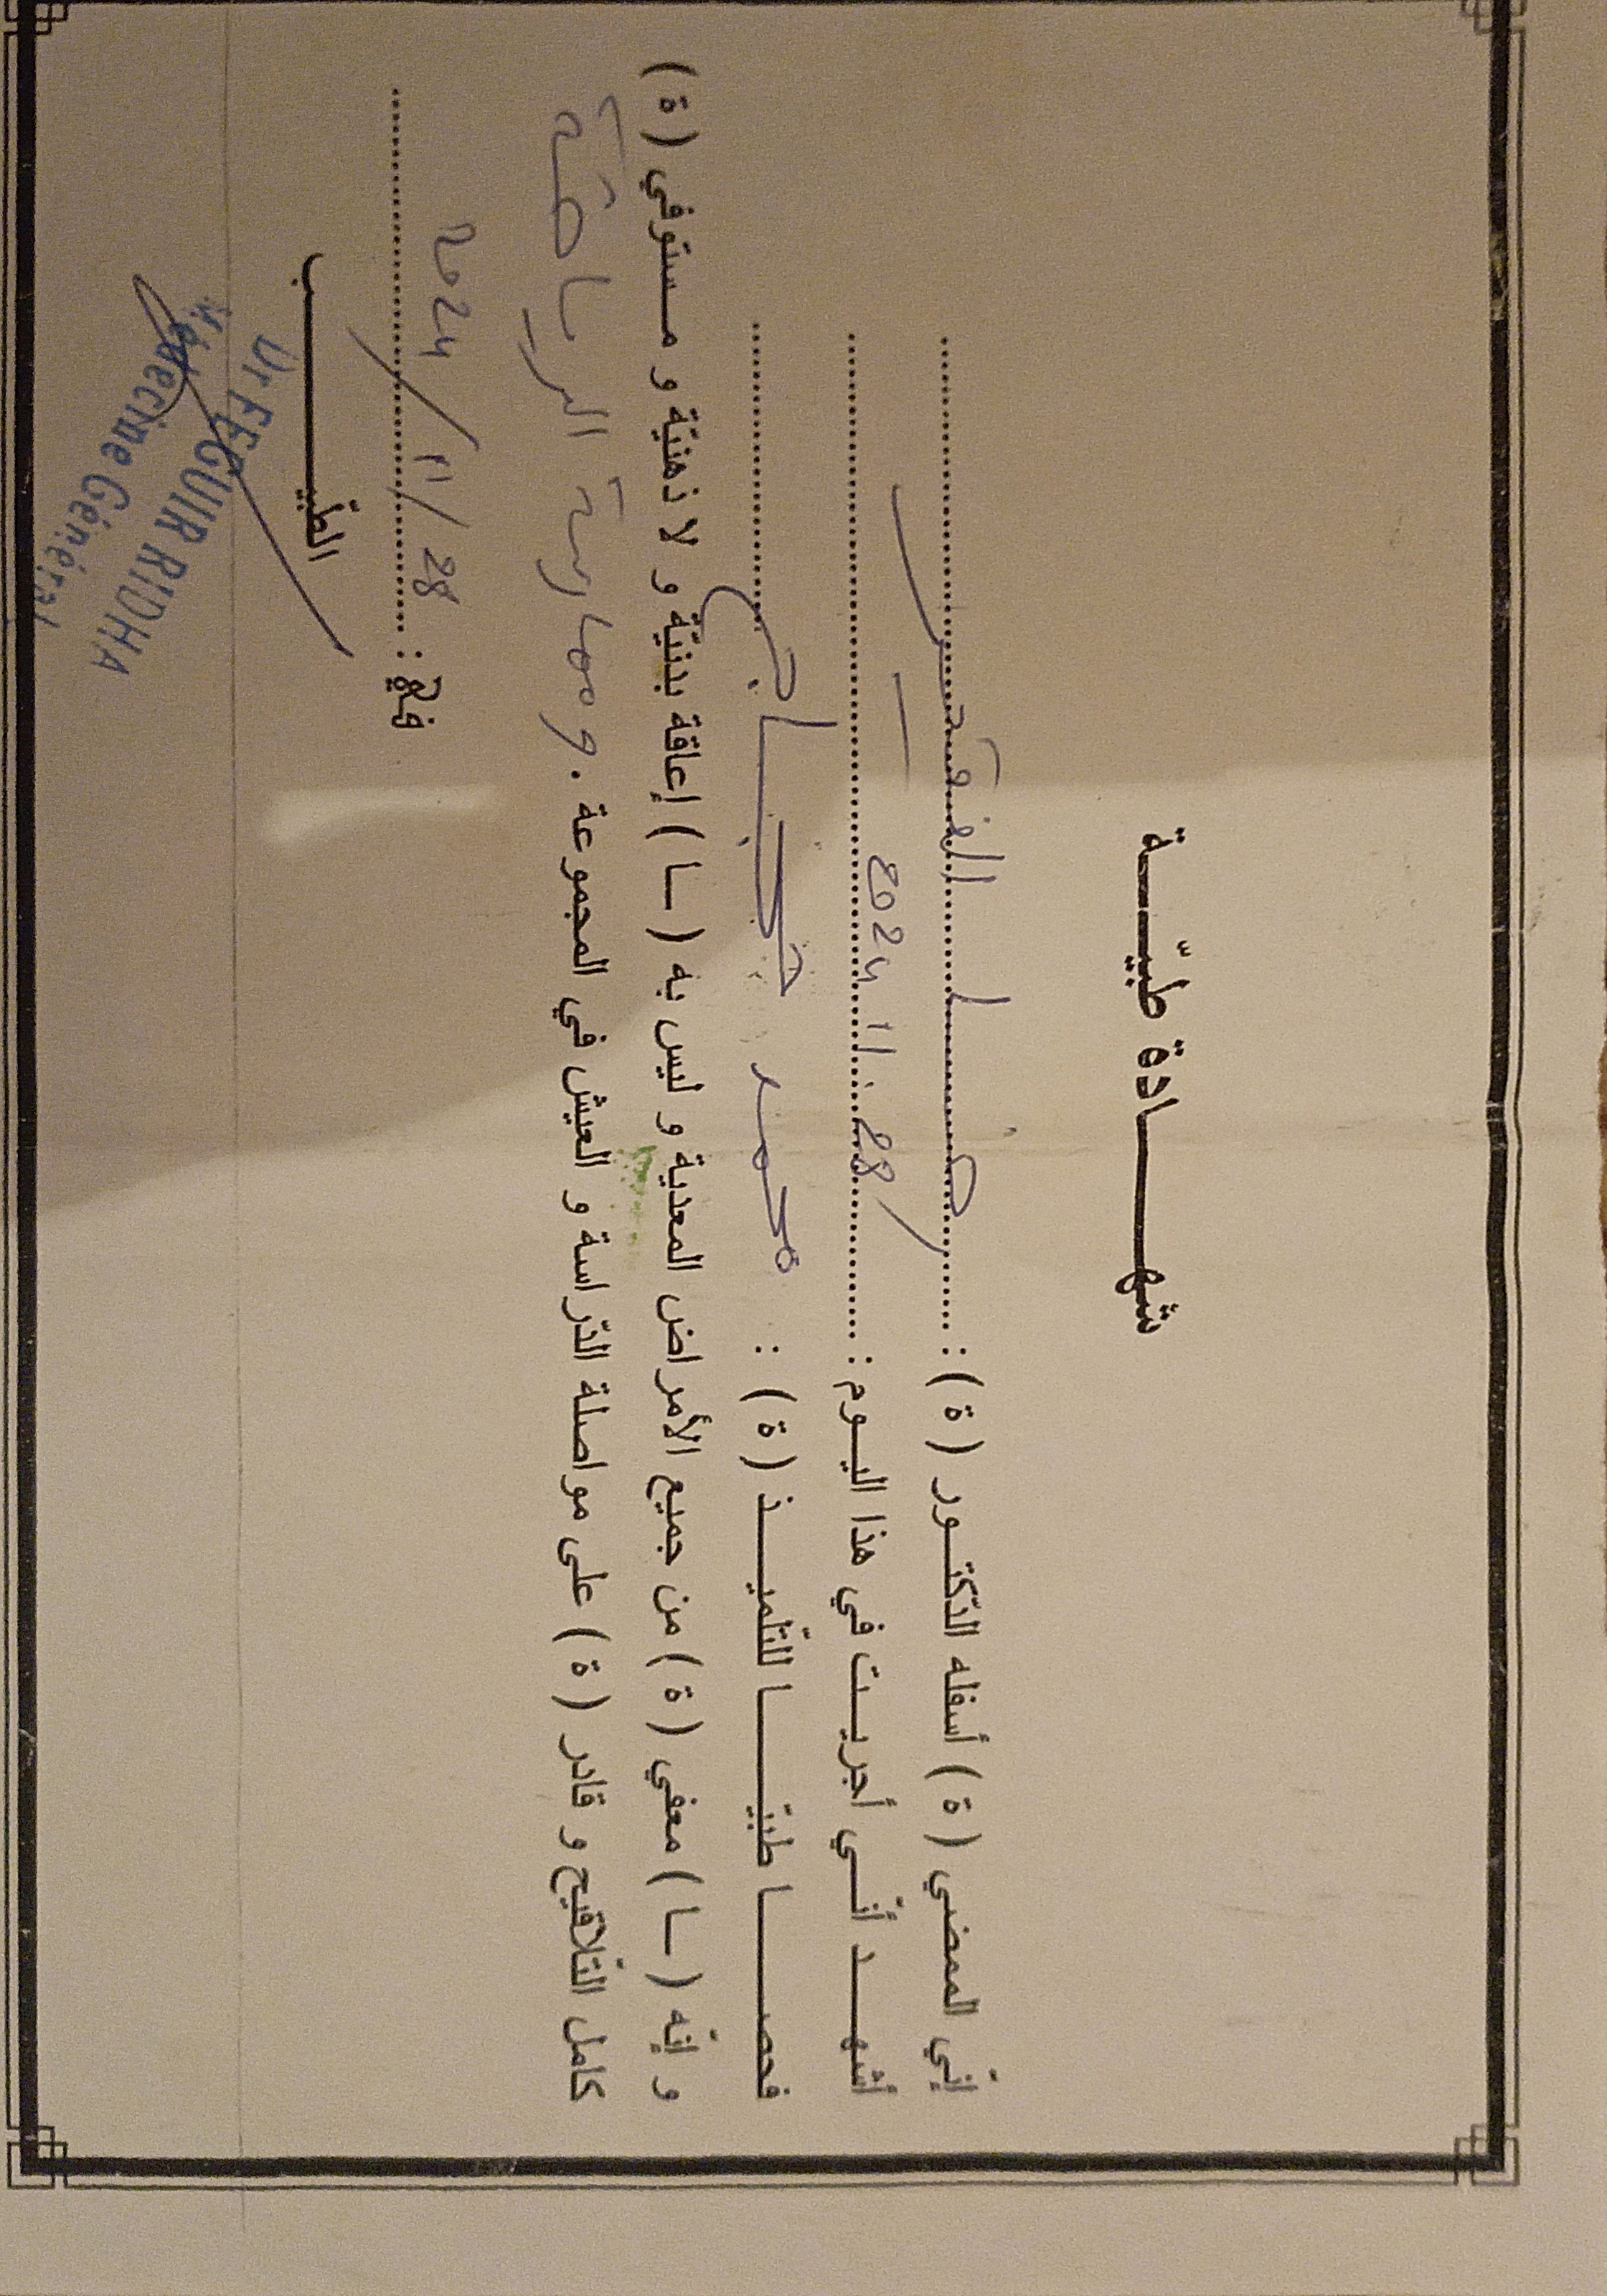 شهـــادة طبيّـــة
إنّي الممضي ( ة ) أسفله الدّكتــور ( ة ) : رضــا الفقير
أشهـــد أنّــي أجريــت في هذا اليــوم : 28 11 2024
فحصـــا طبيّـــا للتّلميـــذ ( ة ) : محمد
و إنّه ( ــا ) معفي ( ة ) من جميع الأمراض المعدية و ليس به ( ــا ) إعاقة بدنيّة و لا ذهنيّة و مــستوفي ( ة )
كامل التّلاقيح و قادر ( ة ) على مواصلة الدّراسة و العيش في المجموعة . و ممارسة الرياضة
في : 28 / 11 / 2024
الطّبيـــب
Dr FEGUIR RIDHA
Médecine Général